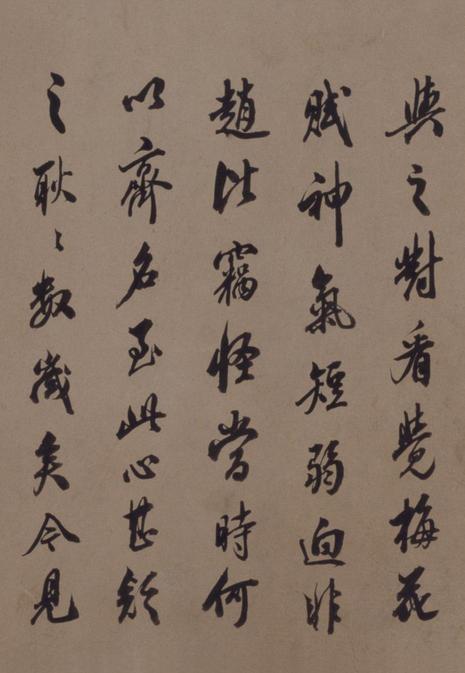 與之對看覺梅花
賦神氣短弱逈非
趙比竊怪當時何
以齊名至此心甚疑
之耿〻數歲矣今見